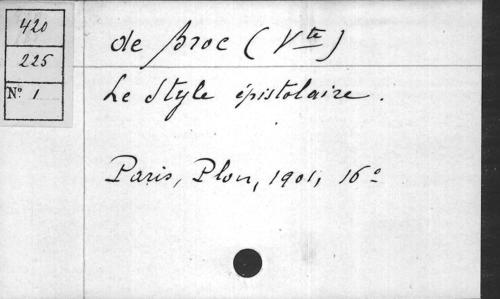 420
225
N° 1
de Broc (Vte)
Le Style épistolaire.
Paris, Plon, 1901, 16°